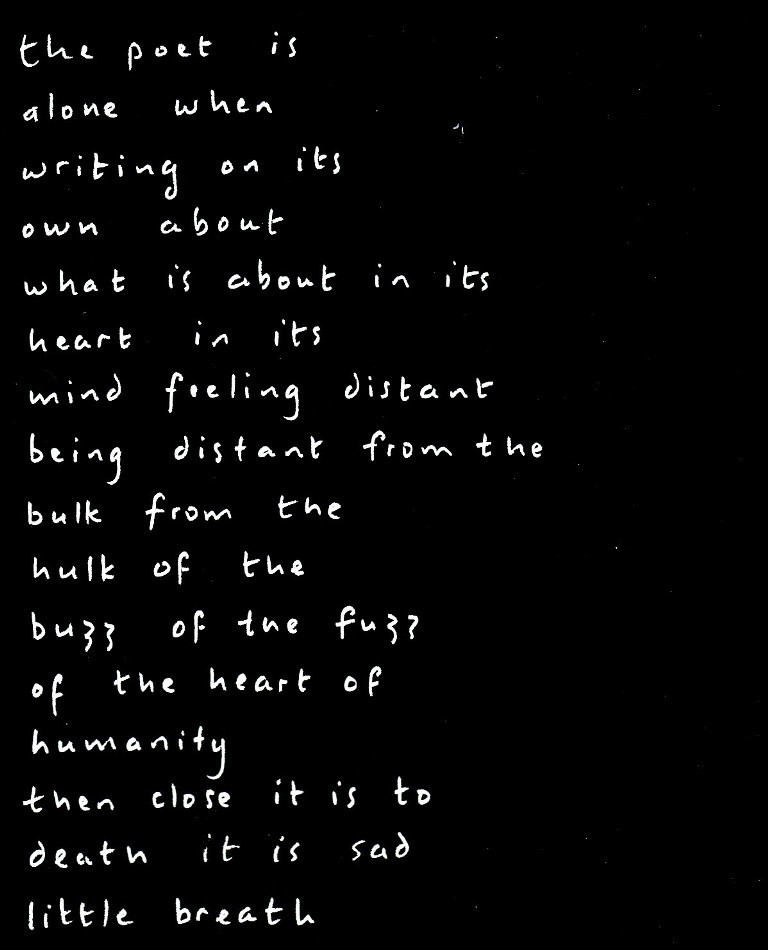 the poet is
alone when
writing on its
own about
what is about in its
heart in its
mind feeling distant
being distant from the
bulk from the
hulk of the
buzz of the fuzz
of the heart of
humanity
then close it is to
death it is sad
little breath